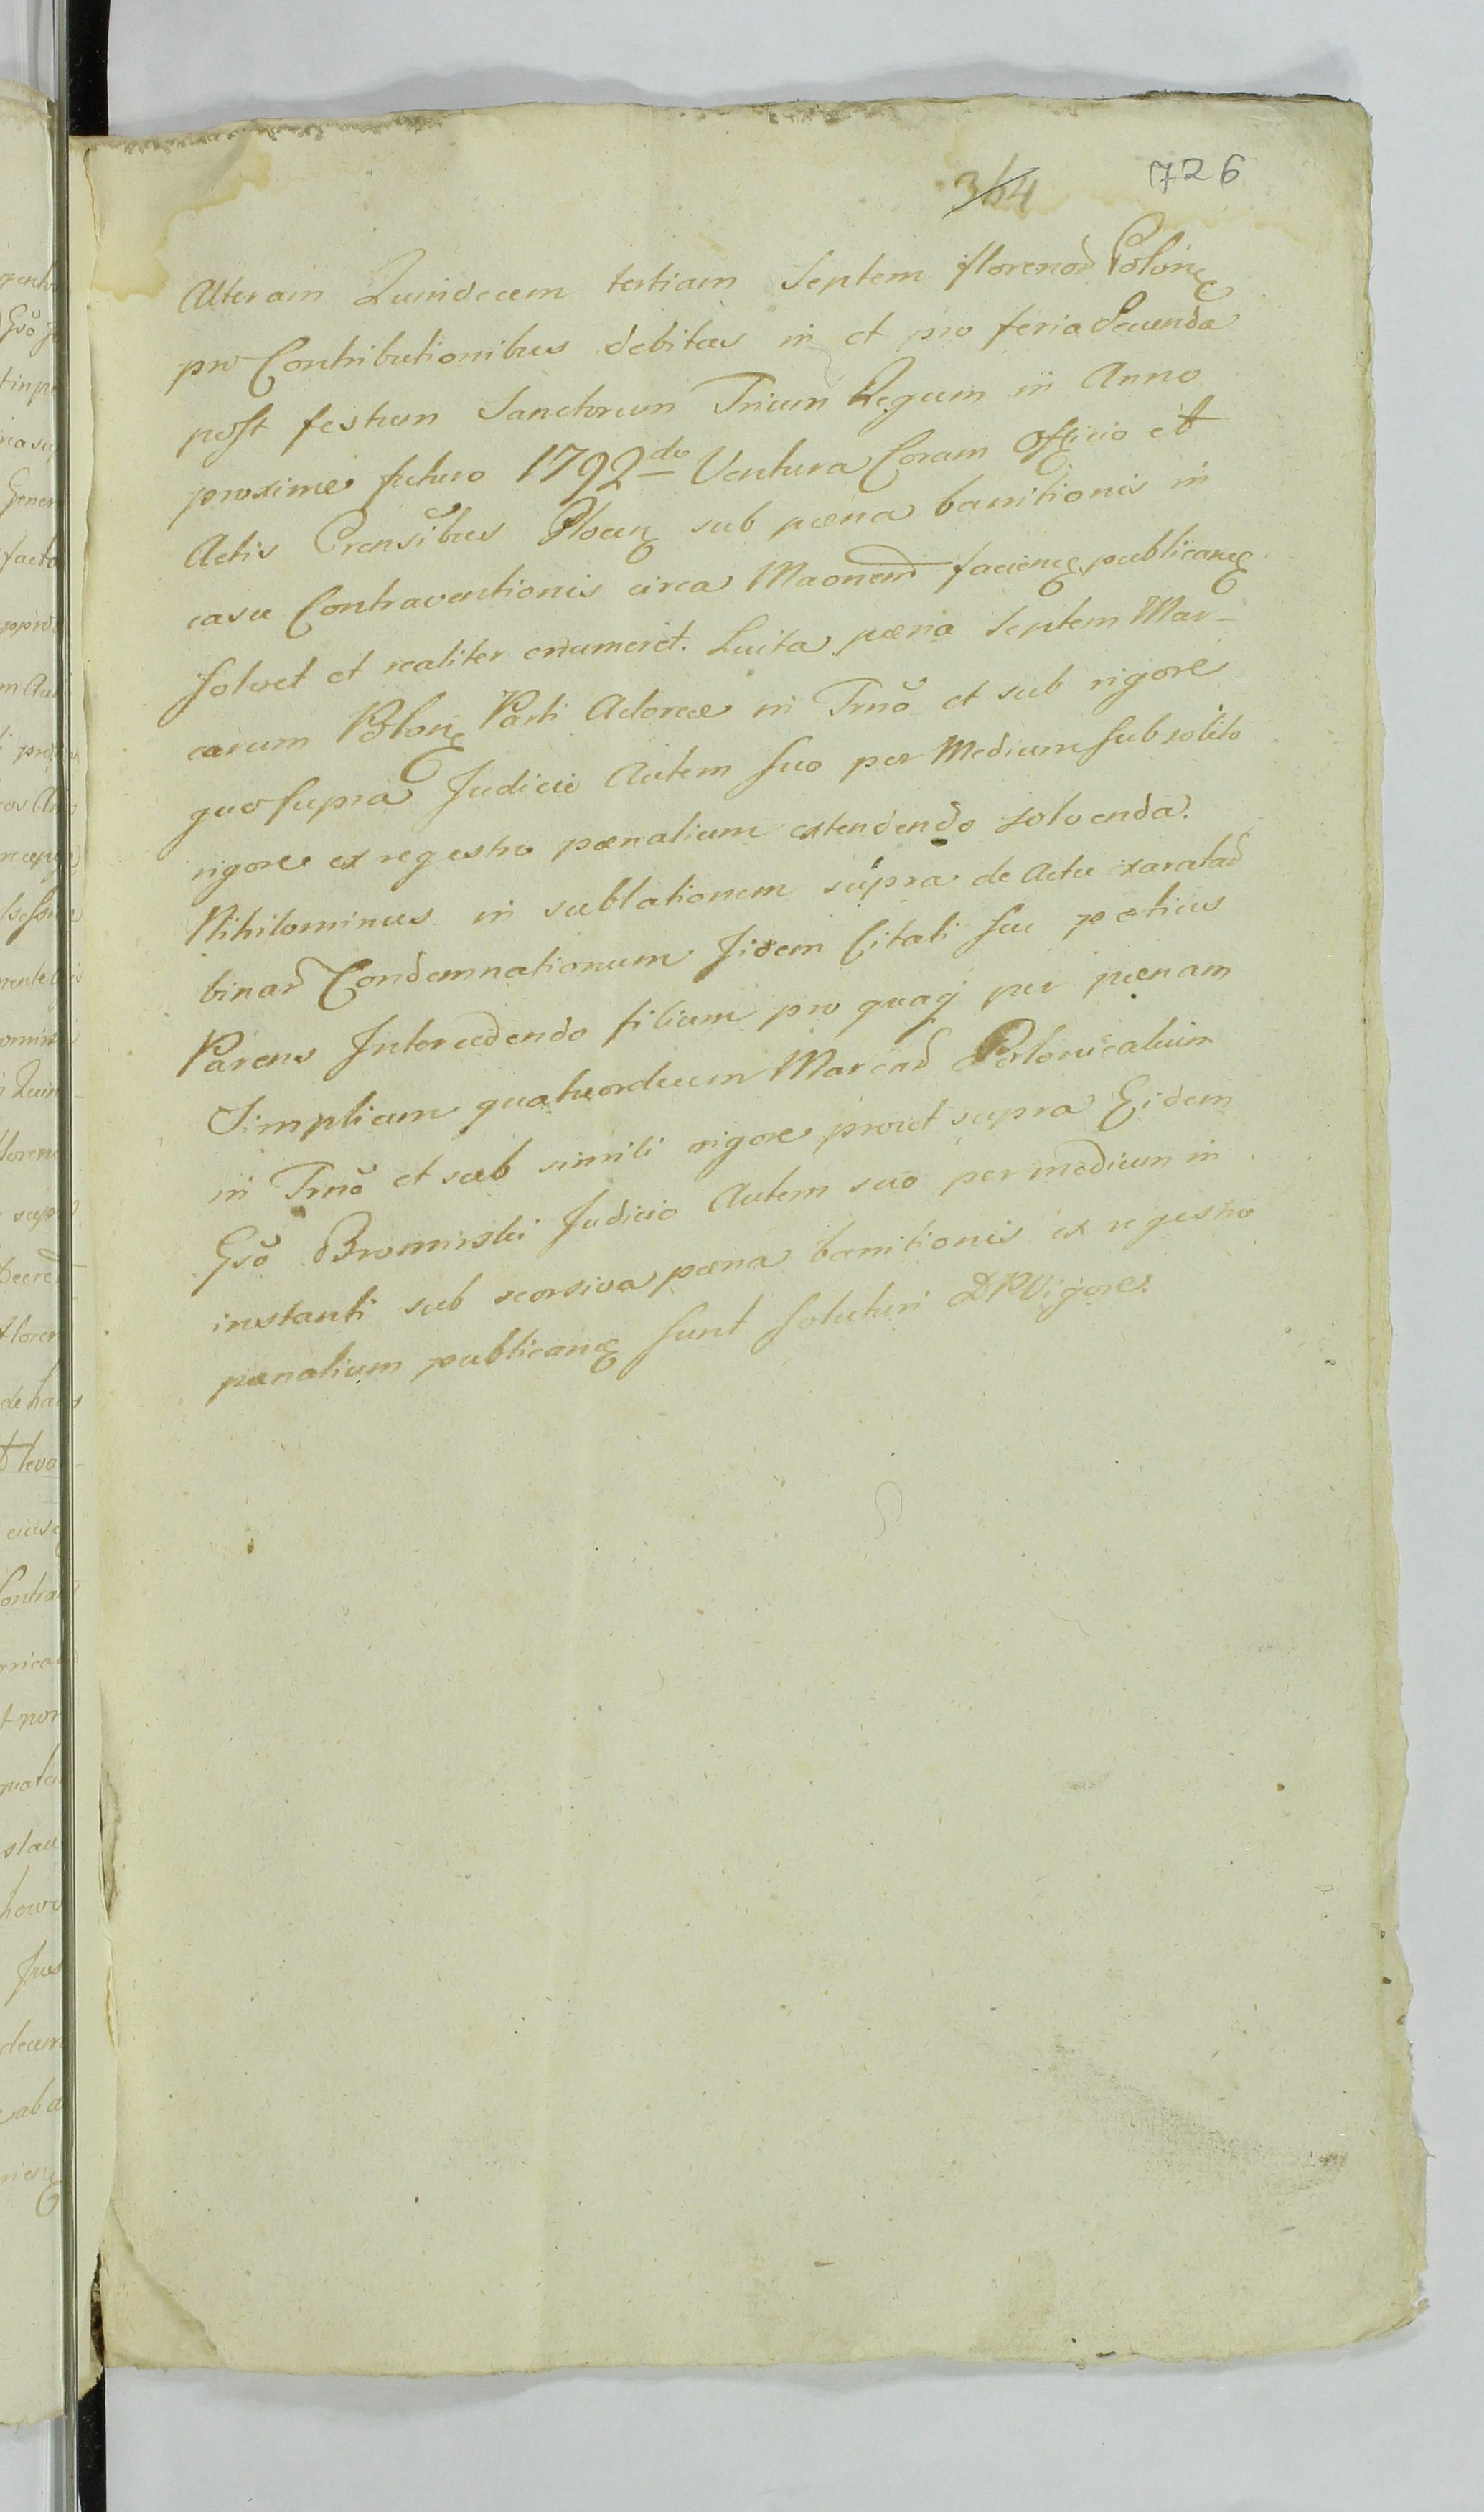 364 726
Alteram Quindecem tertiam Septem florenor Polon
pro Contributionibus debitas in et pro feria Secunda
post festum Sanctorum Trium Regum in Anno
proxime futuro 1792do Ventura Coram Officio et
Actis Crensibus Plocen sub pœna banitionis in
casu Contraventionis circa faciend publicand
solvet et realiter enumeret. Luita pœna Septem Mar-
carum Polon Parti Actoreæ in Trno et sub rigore
quo supra Judicio Autem suo per Medium sub solito
rigore ex regestro pœnalium extendendo solvenda.
Nihilominus in sublationem supra de Actu exaratar
binar Condemnationum Jidem Citati seu potius
Parens Intercedendo filium pro quaq per pœnam
Simplicem quatuordecem Marcar Polonicalium
in Trno et sub simili rigore prout supra Eidem
Gso Bromirski Judicio Autem suo per medium in
instanti sub seorsiva pœna banitionis ex regestro
pœnalium publicand sunt soluturi DPVigore.